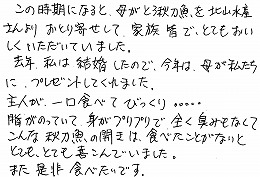 この時期になると、母がと秋刀魚を北山水産
さんよりお取り寄せして、家族皆で、とてもおい
しくいただいていました。
去年、私は結婚したので、今年は、母が私たち
に、プレゼントしてくれました。
主人が、一口食べてびっくり.....
脂がのっていて、身がプリプリで全く臭みもなくて
こんな秋刀魚の開きは、食べたことがないと
とても、とても喜こんでいました。
また是非食べたいです。